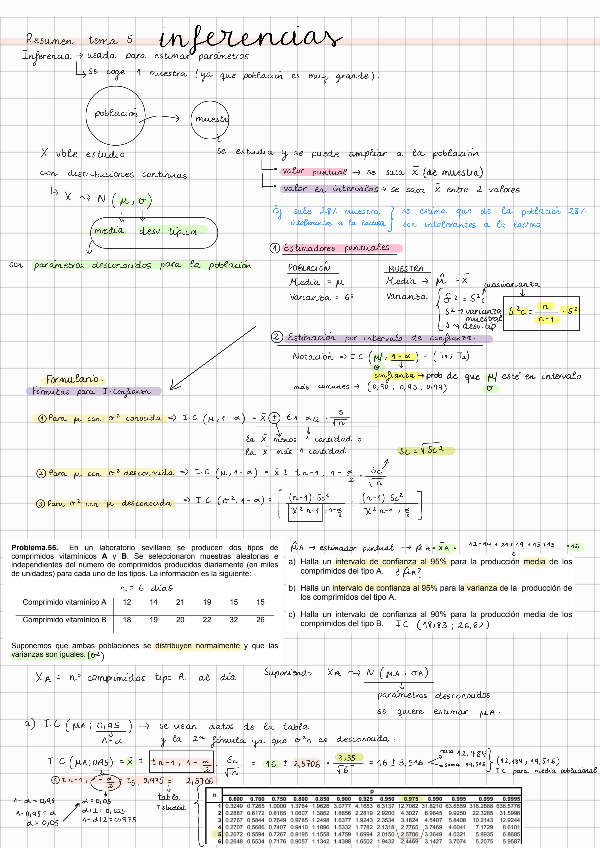 Resumen tema 5 inferencias
Inferencia → usada para estimar parámetros
↳ se coge 1 muestra (ya que población es muy grande).
población → muestra
X vble estudio
con distribuciones continuas
↳ X ~ N (μ, σ)
media desv. típica
son parámetros desconocidos para la población
se estudia y se puede ampliar a la población
• valor puntual → se saca x̄ (de muestra)
• valor en intervalos → se saca x̄ entre 2 valores
Ej. sale 28% muestra intolerantes a la lactosa } se estima que de la población 28% son intolerantes a la lactosa
① Estimadores puntuales
POBLACIÓN MUESTRA
Media = μ Media → μ̂ = x̄
Varianza = σ² Varianza
cuasivarianza
S² → varianza muestral
S → desv. tip
S²c = n / n-1 · S²
② Estimación por intervalo de confianza.
Notación → I C (μ/σ, 1-α) = (T1, T2)
confianza → prob de que μ/σ esté en intervalo
más comunes → (0,90 ; 0,95 ; 0,99)
Formulario.
Fórmulas para I. Confianza
① Para μ con σ² conocida ⇒ I.C (μ, 1-α) = x̄
la x̄ menos 1 cantidad o
la x̄ más 1 cantidad
Sc = √Sc²
② Para μ con σ² desconocida ⇒ I.C (μ, 1-α) = x̄ ± t n-1, 1-α/2 · Sc/√n
③ Para σ² con μ desconocida ⇒ I.C (σ², 1-α) = [ (n-1)·Sc² / χ² n-1, 1-α/2 ; (n-1)·Sc² / χ² n-1, α/2 ]
Problema.55. En un laboratorio sevillano se producen dos tipos de
comprimidos vitamínicos A y B. Se seleccionaron muestras aleatorias e
independientes del número de comprimidos producidos diariamente (en miles
de unidades) para cada uno de los tipos. La información es la siguiente:
n = 6 días
Comprimido vitamínico A 12 14 21 19 15 15
Comprimido vitamínico B 18 19 20 22 32 26
Suponemos que ambas poblaciones se distribuyen normalmente y que las
varianzas son iguales. (σ²)
μ̂A → estimador puntual → μ̂A = x̄A = 12+14+21+19+15+15 / 6 = 16
a) Halla un intervalo de confianza al 95% para la producción media de los
comprimidos del tipo A. ¿μA?
b) Halla un intervalo de confianza al 95% para la varianza de la producción de
los comprimidos del tipo A.
c) Halla un intervalo de confianza al 90% para la producción media de los
comprimidos del tipo B. IC (18,83 ; 26,82)
XA = nº comprimidos tipo A al día
Suponiendo XA → N (μA ; σA)
parámetros desconocidos
se quiere estimar μA.
a) I.C (μA ; 0,95) → se usan datos de la tabla
1-α y la 2ª fórmula ya que σ²A es desconocida.
I C (μA; 0,95) = x̄ ± t n-1, 1-α/2 · Sc/√n = 16 ± 2,5706 · 3,35/√6 = 16 ± 3,516
resta 12,484
suma 19,516
(12,484 , 19,516)
IC para media poblacional
t 5, 0,975 = 2,5706
tabla T Student
1-α = 0,95
1-0,95 = α
α = 0,05
α = 0,05
α/2 = 0,025
1-α/2 = 0,975
p
n 0.600 0.700 0.750 0.800 0.850 0.900 0.925 0.950 0.975 0.990 0.995 0.999 0.9995
1 0.3249 0.7265 1.0000 1.3764 1.9626 3.0777 4.1653 6.3137 12.7062 31.8210 63.6559 318.2888 636.5776
2 0.2887 0.6172 0.8165 1.0607 1.3862 1.8856 2.2819 2.9200 4.3027 6.9645 9.9250 22.3285 31.5998
3 0.2767 0.5844 0.7649 0.9785 1.2498 1.6377 1.9243 2.3534 3.1824 4.5407 5.8408 10.2143 12.9244
4 0.2707 0.5686 0.7407 0.9410 1.1896 1.5332 1.7782 2.1318 2.7765 3.7469 4.6041 7.1729 8.6101
5 0.2672 0.5594 0.7267 0.9195 1.1558 1.4759 1.6994 2.0150 2.5706 3.3649 4.0321 5.8935 6.8685
6 0.2648 0.5534 0.7176 0.9057 1.1342 1.4398 1.6502 1.9432 2.4469 3.1427 3.7074 5.2075 5.9587